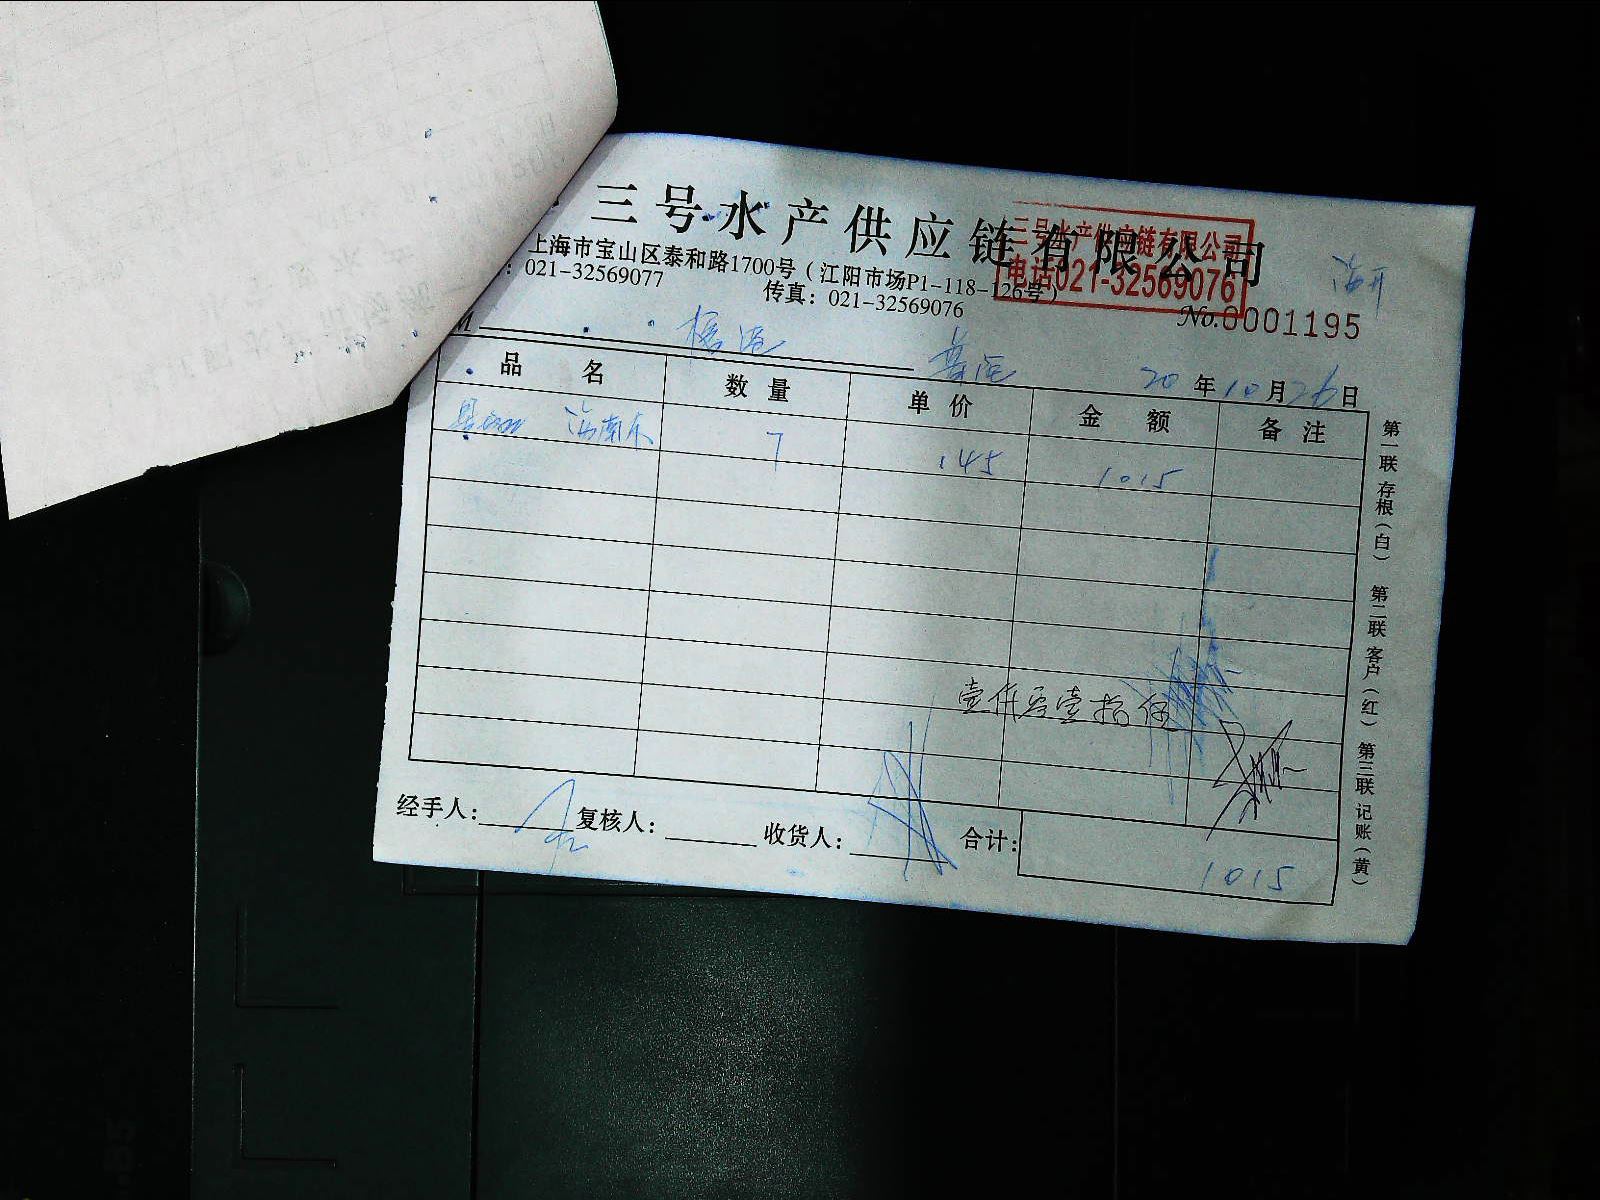 三号水产供应链有限公司
三号水产供应链有限公司
电话021-32569076
上海市宝山区泰和路1700号（江阳市场P1-118-126号）
：021-32569077 传真：021-32569076
No.0001195
M
20年10月26日
品名 数量 单价 金额 备注
海南 7 145 1015
壹仟零壹拾伍
经手人： 复核人： 收货人： 合计： 1015
第一联 存根（白） 第二联 客户（红） 第三联 记账（黄）